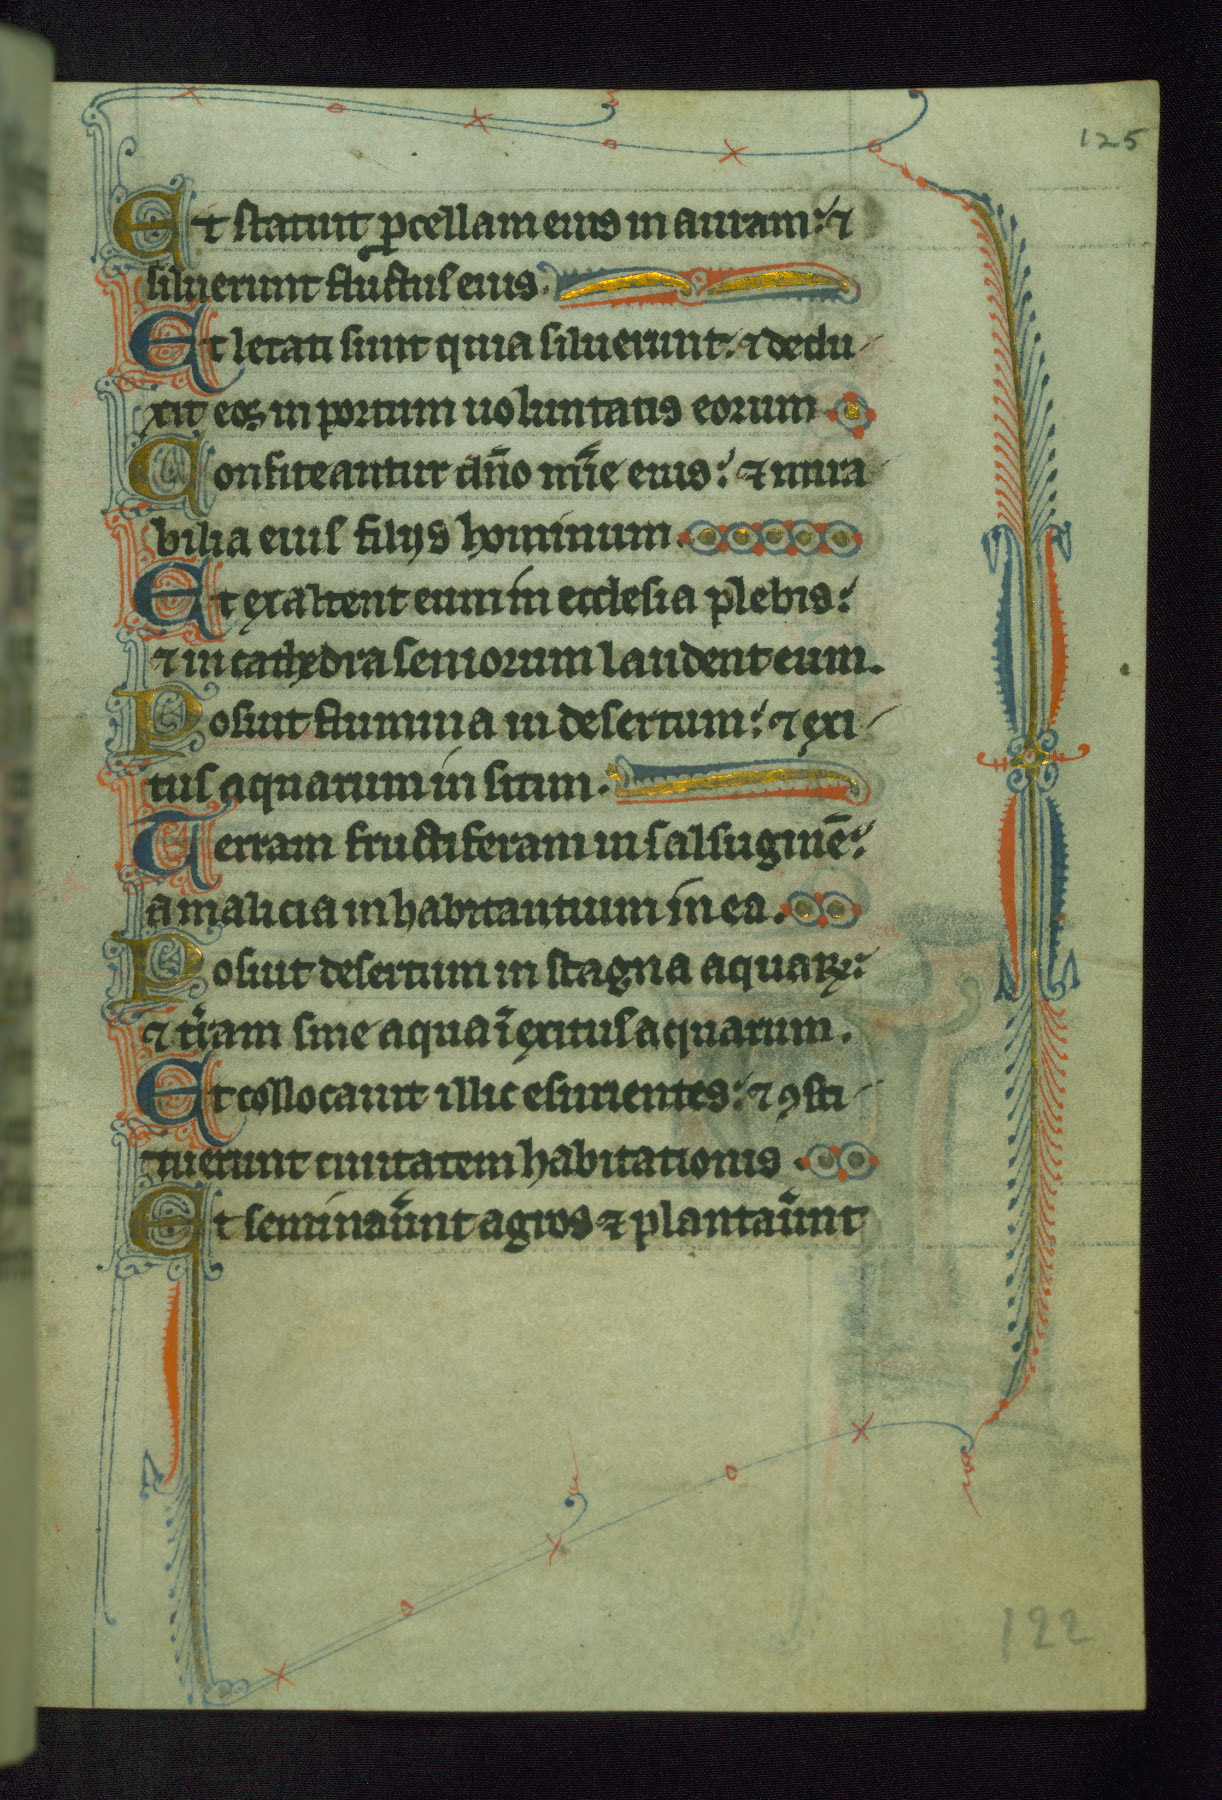 125
Et statuit ꝓcellam eius in auram: ⁊
siluerunt fluctus eius.
Et letati sunt quia siluerunt. ⁊ dedu
xit eos in portum uoluntatis eorum
Confiteantur dn̄o mīe eius: ⁊ mira
bilia eius filijs hominum.
Et exaltent eum in ecclesia plebis:
⁊ in cathedra seniorum laudent eum.
Posuit flumina in desertum: ⁊ exi
tus aquarum in sitim.
Terram fructiferam in salsuginē:
a malicia inhabitantium in ea.
Posuit desertum in stagna aquaꝝ:
⁊ tr̄am sine aqua ī exitus aquarum.
Et collocauit illic esurientes: ⁊ ꝯsti
tuerunt ciuitatem habitationis
Et seminauer̄nt agros ⁊ plantauer̄nt
122